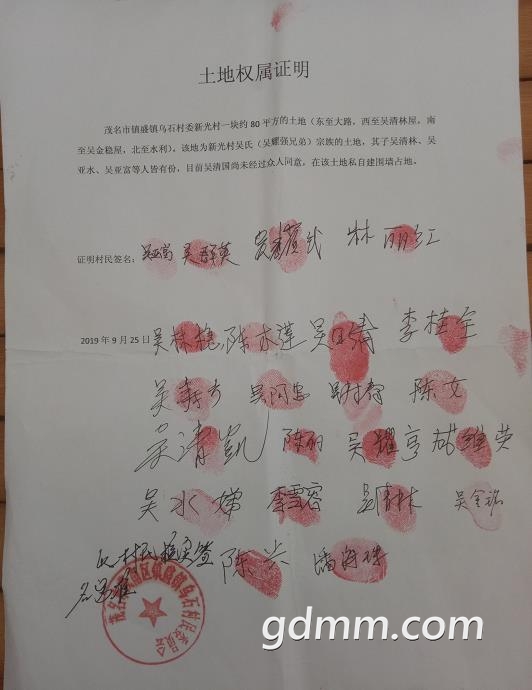 土地权属证明
茂名市镇盛镇乌石村委新光村一块约 80 平方的土地（东至大路，西至吴清林屋，南
至吴金稳屋，北至水利）。该地为新光村吴氏（吴耀强兄弟）宗族的土地，其子吴清林、吴
亚水、吴亚富等人皆有份，目前吴清国尚未经过众人同意，在该土地私自建围墙占地。
证明村民签名：吴亚富 吴 英 吴 武 林丽红
2019 年 9 月 25 日 吴 陈木莲 吴 李桂全
吴 吴 吴 陈文
吴清凯 陈丽 吴耀亨 维荣
吴水嫦 李雪容 吴清林 吴金
村民 签
名
陈兴 潘海珠
茂名 区镇盛镇乌石村民委员会
gdmm.com